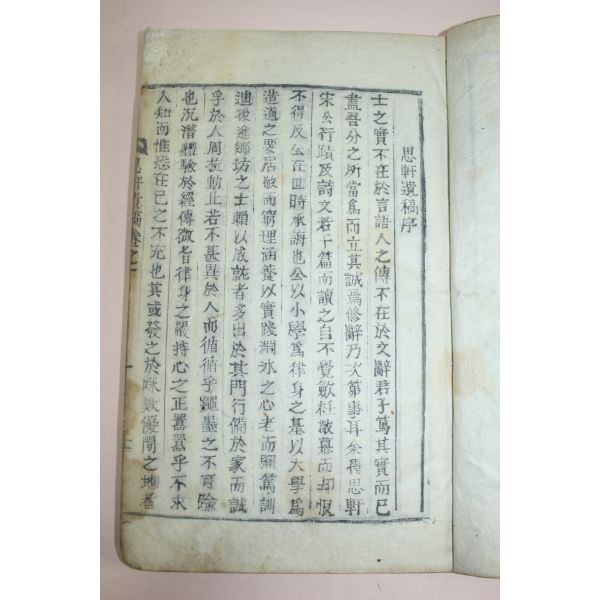 思軒遺稿序
士之實不在於言語人之傳不在於文辭君子篤其實而已
盡吾分之所當爲而立其誠焉修辭乃次第事耳余得思軒
宋公行蹟及詩文若干篇而讀之自不覺歛衽敬慕而却恨
不得反公在世時承誨也公以小學爲律身之基以大學爲
造道之要居敬而窮理涵養以實踐淵氷之心老而彌篤訓
迪後進鄕坊之士賴以成就者多出於其門行備於家而誠
孚於人周旋動止若不甚異於人而循循乎繩墨之不可踰
也沉潛體驗於經傳微旨律身之嚴持心之正囂囂乎不求
人知而惟恐在己之不充也其或發之於咏 優閒之地者
思軒遺稿卷之一